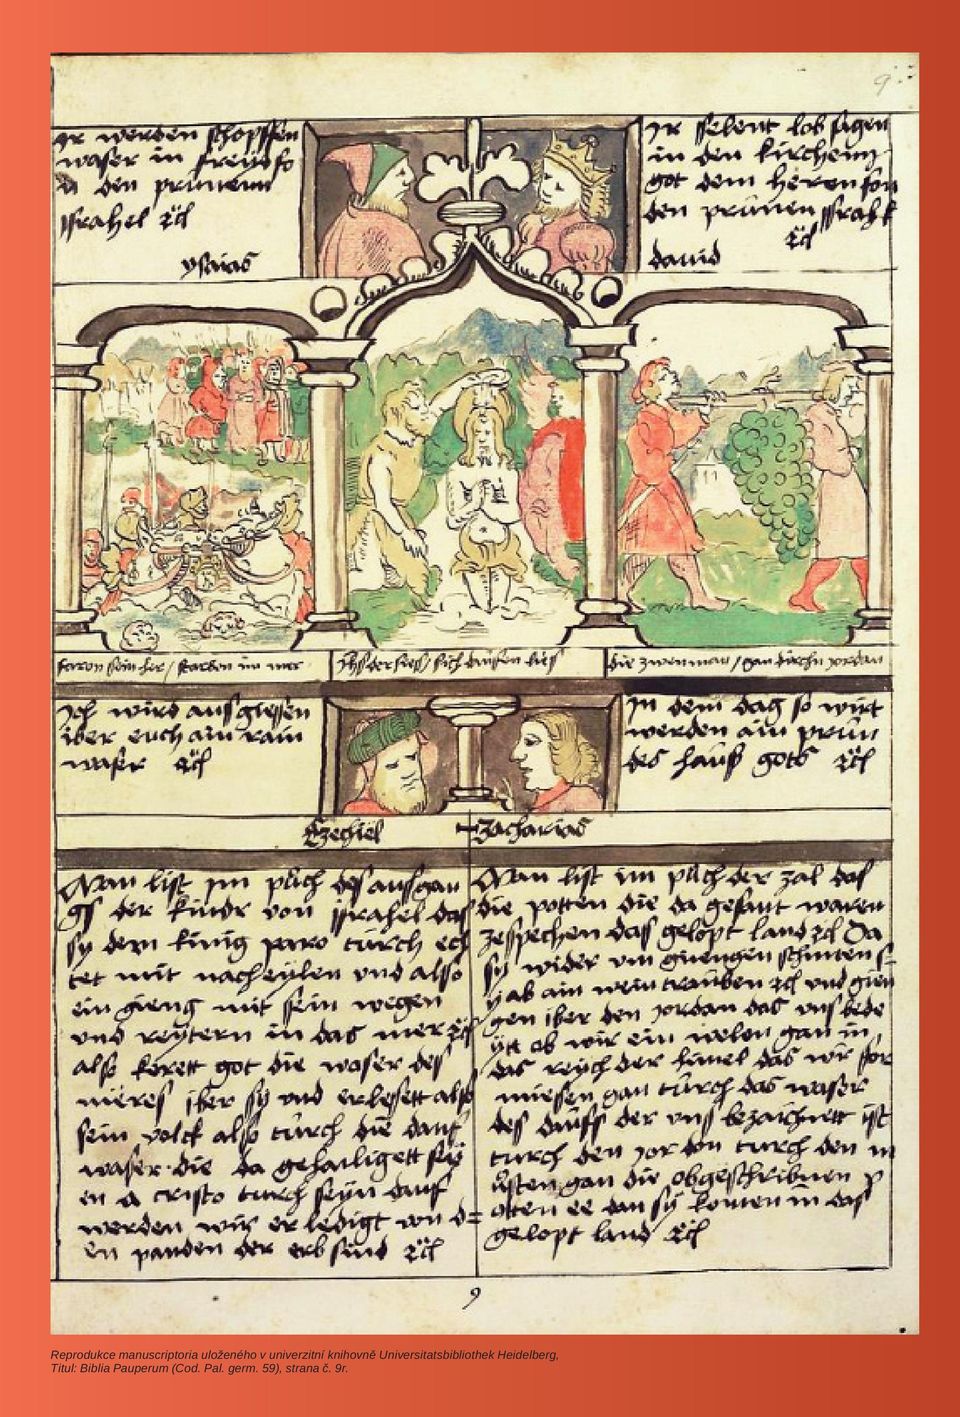 9
Ir werden schopffen
waser in freyd so
den prunenn
jsrahel
ysaias
Ir sebent lob sagen
in den kirchenn
got dem heren fon
den prunen jsrahl
dauid
faron sein her / starbon im mer
der sich lies
die zwen man / gan durchn jordan
Ich wird aussgiessen
iber euch ain rain
waser
In dem dag so wirt
werden ain prun
des hauß gots
Ezechiel
Zacharias
Man list im puch des ausgan
gs der kindr von jsrahel das
sy dem kinig paro turch ech
tet mit nacheylen vnd also
ein gieng mit sein wegen
vnd reytern in das mer
also kerett got die waser des
mieres iber sy vnd erlesett also
sein volck also turch die dauf
waser die da gehailigett sey
en a cristo turch seyn dauf
werden wir er ledigt von d=
en panden der erb sind
Man list im puch der zal das
die potten die da gesant waren
zespechen das gelopt land Da
sy wider vm giengen schnitten s
y ab ain wein trauben vnd gien
gen iber den jordan das vns bede
ytt ob wir ein welen gan in
das reych der himel das wir for
miesen gan turch das waser
des dauffs der vns bezaichnett ist
turch den jor don turch den m
iesten gan die obgeschribnen p
otten ee dan sy komen in das
gelopt land
9
Reprodukce manuscriptoria uloženého v univerzitní knihovně Universitatsbibliothek Heidelberg,
Titul: Biblia Pauperum (Cod. Pal. germ. 59), strana č. 9r.